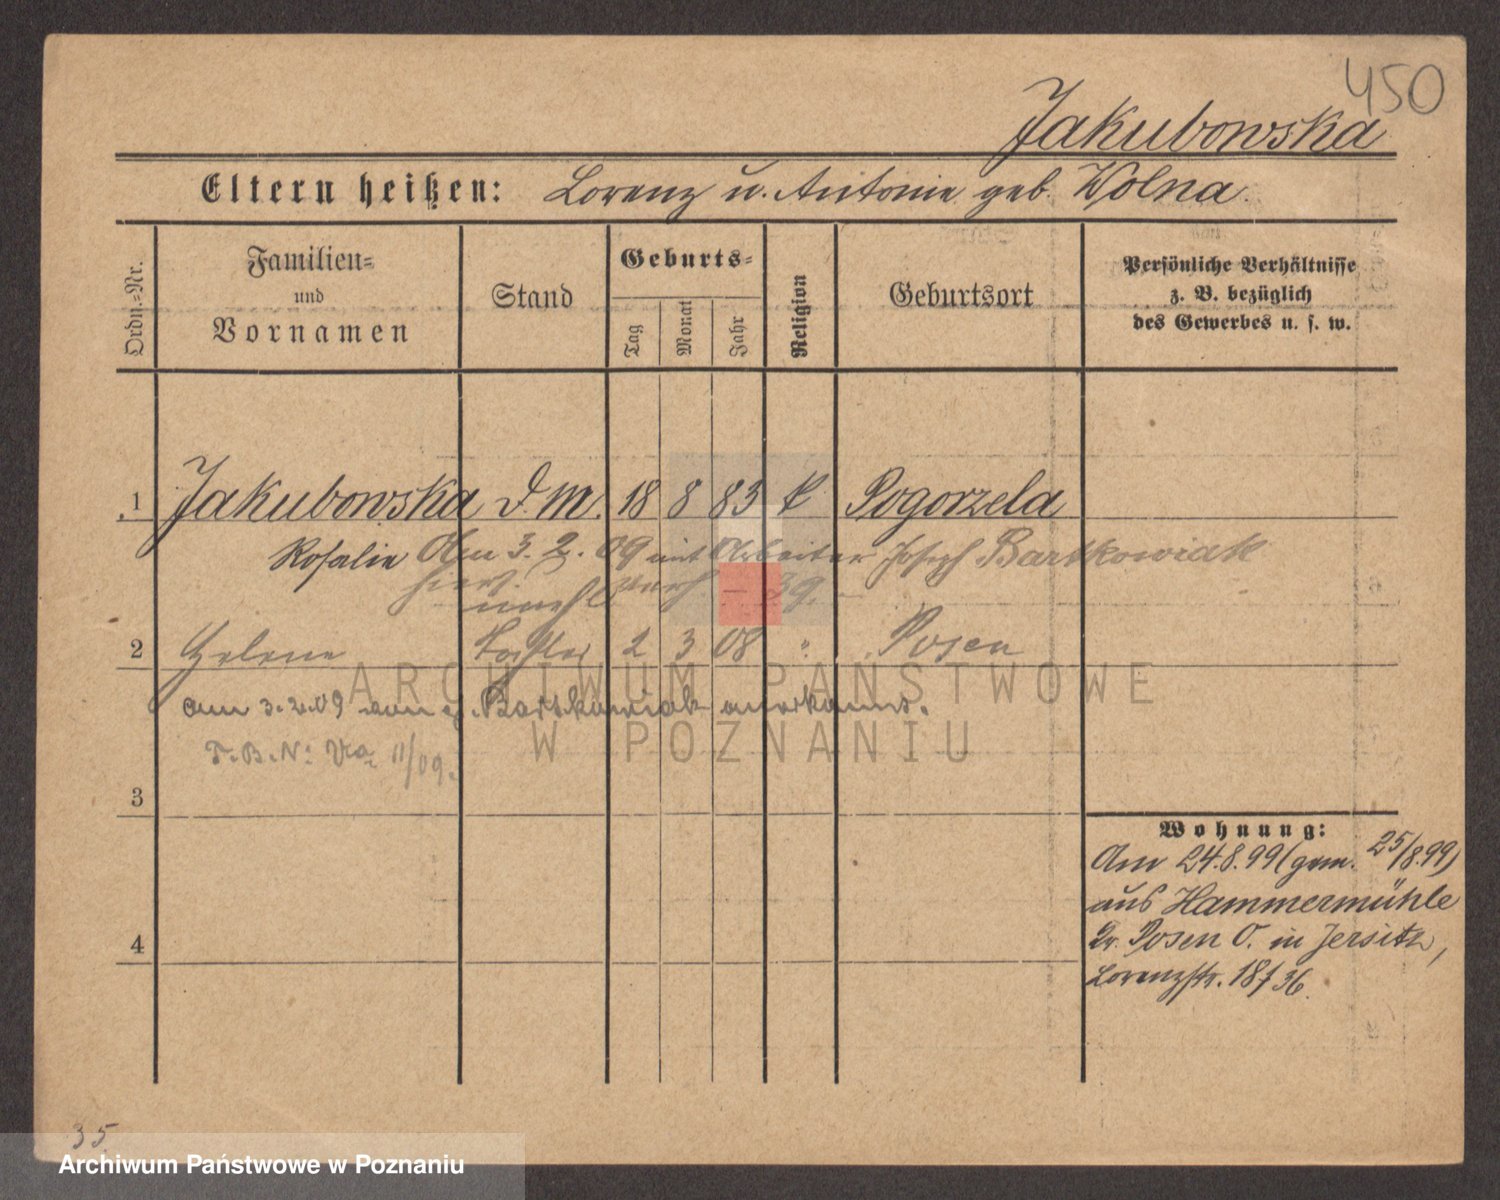 450
Jakubowska
Eltern heißen: Lorenz u. Antonie geb. Wolna.
Ordn.-Nr.
Familien-
und
Vornamen
Stand
Geburts-
Tag
Monat
Jahr
Religion
Geburtsort
Persönliche Verhältnisse
z. B. bezüglich
des Gewerbes u. s. w.
1 Jakubowska D. M. 18 8 83 k Pogorzela
Rosalie Am 3. 2. 09 mit Arbeiter Joseph Bartkowiak
hier verh - 39.
2 Helene Tochter 2 3 08 " Posen
am 3.2.09 von J. Bartkowiak anerkannt.
T.B.N: 11/09.
3
4
Wohnung:
Am 24.8.99 (gem. 25/8.99)
aus Hammermühle
Kr. Posen O. in Jersitz,
Lorenzstr. 18 f 36.
35
ARCHIWUM PAŃSTWOWE
W POZNANIU
Archiwum Państwowe w Poznaniu